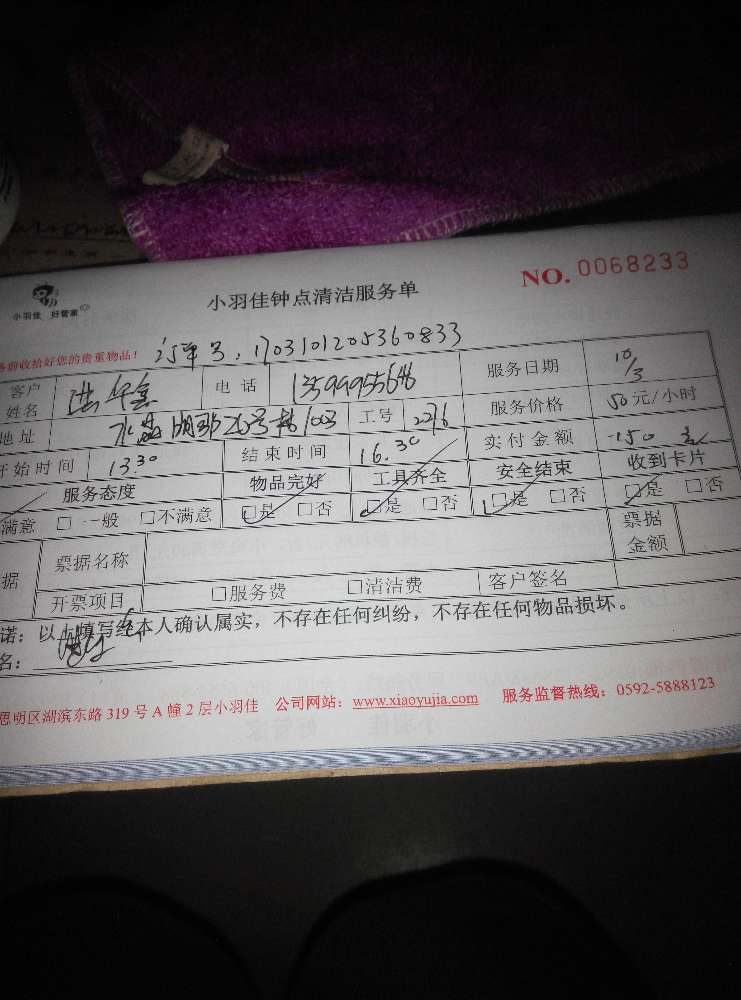 小羽佳 好管家
小羽佳钟点清洁服务单
NO. 0068233
前收拾好您的贵重物品！ 订单号：1703101205360833
客户姓名 洪 电话 13599955646 服务日期 10/3
地址 水晶 26号楼1003 工号 2276 服务价格 50元/小时
开始时间 13.30 结束时间 16.30 实付金额 -150元
服务态度 物品完好 工具齐全 安全结束 收到卡片
满意 □一般 □不满意 □是 □否 □是 □否 □是 □否 □是 □否
据 票据名称 票据金额
开票项目 □服务费 □清洁费 客户签名
诺：以上填写经本人确认属实，不存在任何纠纷，不存在任何物品损坏。
名：
思明区湖滨东路319号A幢2层小羽佳 公司网站：www.xiaoyujia.com 服务监督热线：0592-5888123